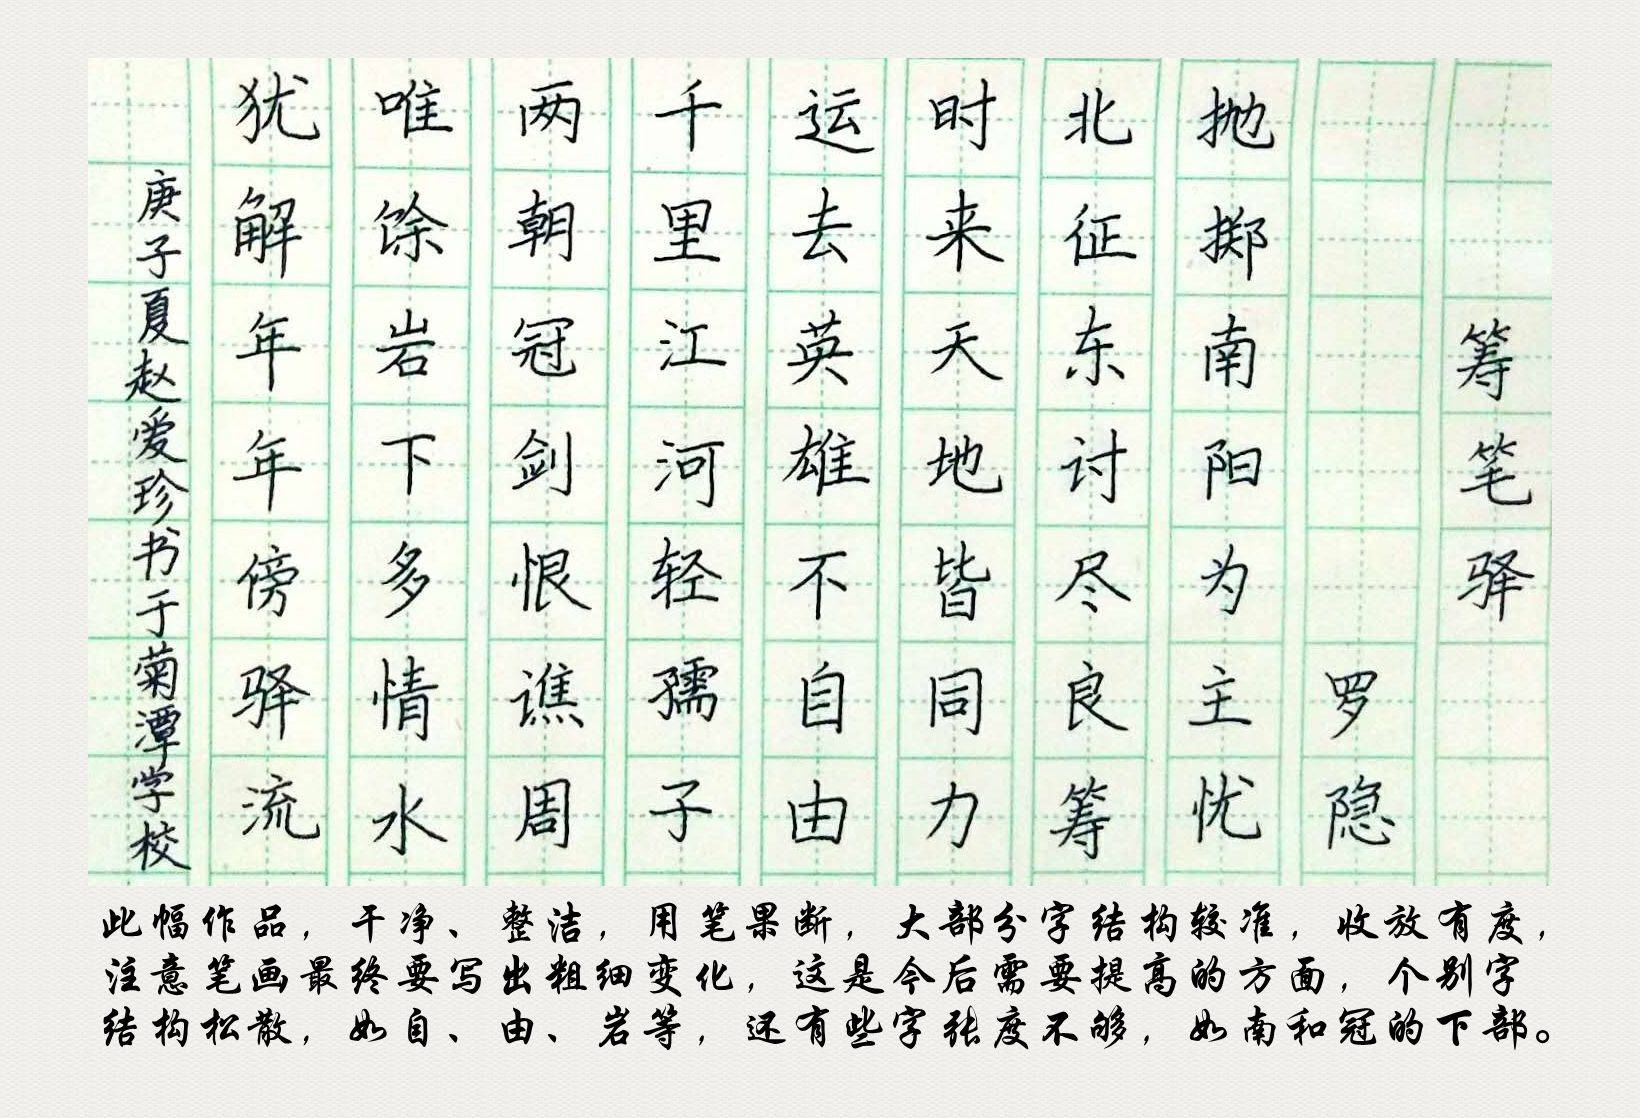 筹笔驿
罗隐
抛掷南阳为主忧
北征东讨尽良筹
时来天地皆同力
运去英雄不自由
千里江河轻孺子
两朝冠剑恨谯周
唯馀岩下多情水
犹解年年傍驿流
庚子夏赵爱珍书于菊潭学校
此幅作品，干净、整洁，用笔果断，大部分字结构较准，收放有度，
注意笔画最终要写出粗细变化，这是今后需要提高的方面，个别字
结构松散，如自、由、岩等，还有些字张度不够，如南和冠的下部。